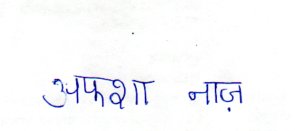 अफशा नाज़